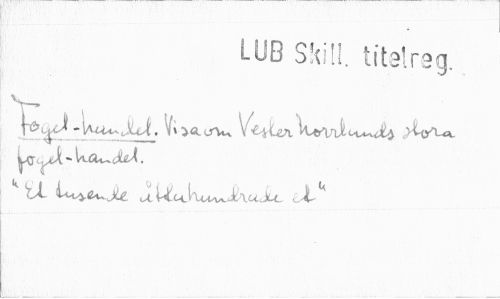 LUB Skill. titelreg.
Fogel-handel. Visa om Vester Norrlands stora
fogel-handel.
"Et tusende åttahundrade et"